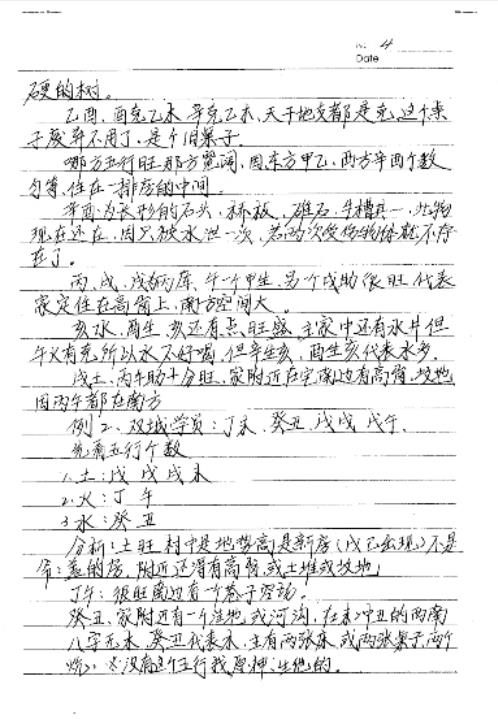 No. 4
Date
硬的树。
乙酉,酉克乙木 辛克乙木,天干地支都是克,这个桌
子废弃不用了,是个旧桌子.
哪方五行旺,那方宽阔,因东方甲乙,西方辛酉个数
匀等,住在一排房的中间.
辛酉为长形的石头,磨石,牛槽其一,此物
现在还在,因只被水泄一次,若两次受伤物体就不存
在了。
丙,戌,戊有两库,午一个甲生,另个戌助很旺代表
家定住在高岗上,南方空间大。
亥水,酉生,亥还有点旺盛,主家中还有水井但
午火有克,所以水不好喝,但辛生亥,酉生亥代表水多.
戊土,丙午助十分旺,家附近在宅南边有高岗,坟地
因丙午都在南方
例2、双城学员:丁未、癸丑、戊戌、戊午、
先看五行个数
1.土:戊 戌 戊 未
2.火:丁 午
3.水:癸 丑
分析:土旺 村中是地势高是新房(戊己出现)不是
命:盖的房,附近还得有高岗,或土堆或坟地
丁午:很旺南边有一个巷子旁动.
癸丑、家附近有一个洼地,或河沟,在未冲丑的西南
八字无木,癸丑代表木,主有两张床,或两张桌子,两个
没有这个五行找原神:生他的。